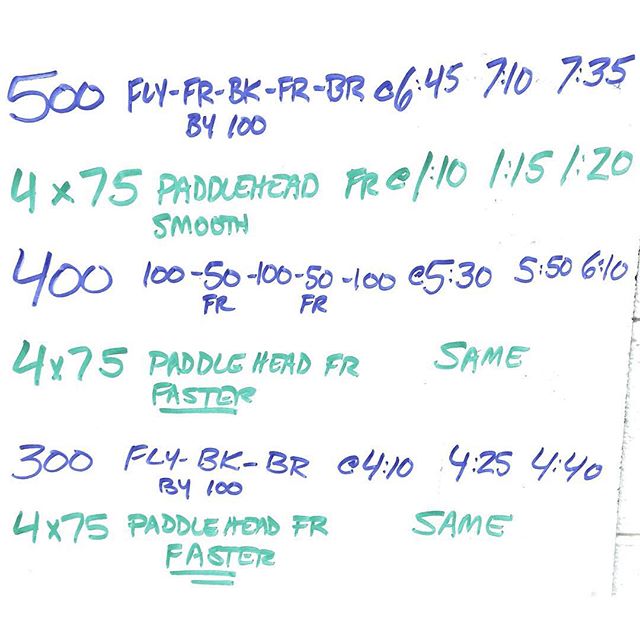 500 FLY-FR-BK-FR-BR @6:45 7:10 7:35
BY 100
4 x 75 PADDLEHEAD FR @ 1:10 1:15 1:20
SMOOTH
400 100-50-100-50-100 @5:30 5:50 6:10
FR FR
4x75 PADDLE HEAD FR SAME
FASTER
300 FLY-BK-BR @4:10 4:25 4:40
BY 100
4x75 PADDLE HEAD FR SAME
FASTER